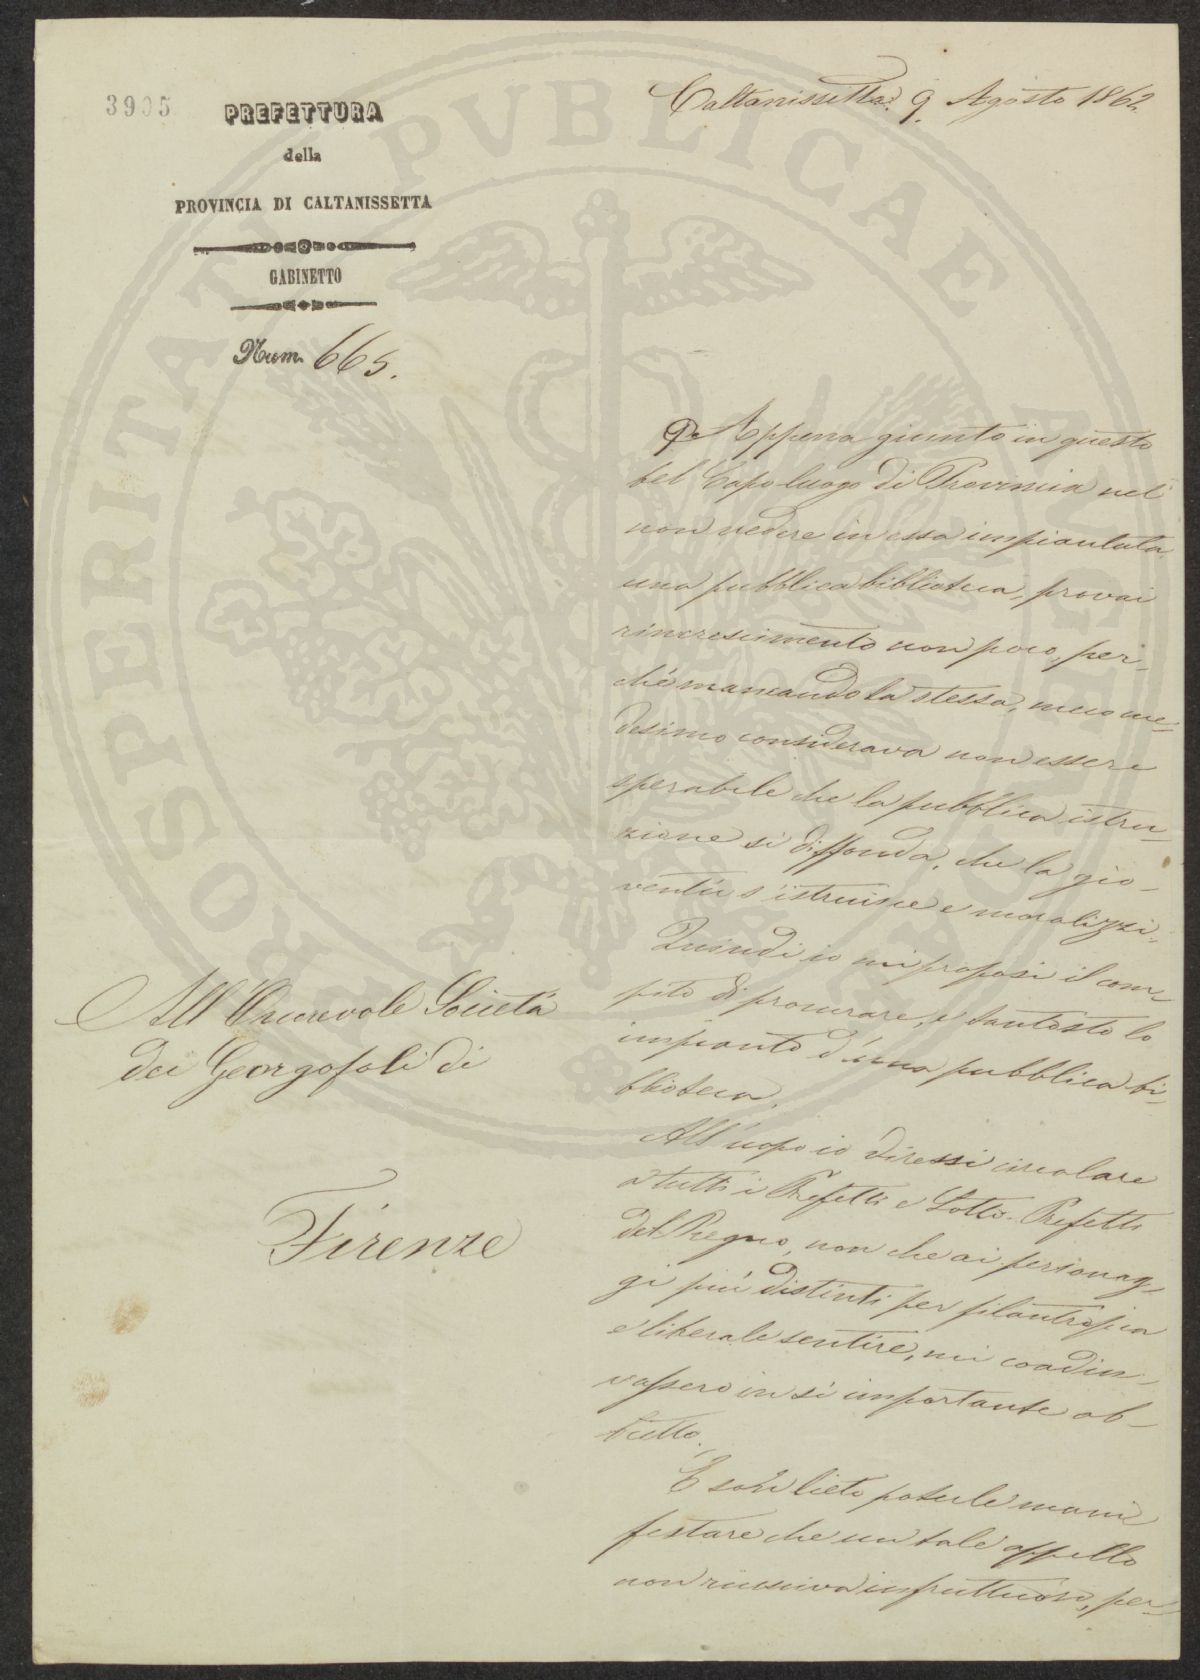 3905
PREFETTURA
della
PROVINCIA DI CALTANISSETTA
GABINETTO
Num. 665.
Caltanissetta 9. Agosto 1862
Appena giunto in questo
bel Capoluogo di Provincia nel
non vedere in essa impiantata
una pubblica biblioteca, provai
rincrescimento non poco, per-
chè mancando la stessa, meco me-
desimo considerava non essere
sperabile che la pubblica istru-
zione si diffonda, che la gio-
ventù s'istruisce e moralizzi.
Quindi io mi proposi il com-
pito di procurare, e tantosto lo
impianto d'una pubblica bi-
blioteca.
All'uopo io diressi circolare
a tutti i Prefetti e Sotto-Prefetti
del Regno, non che ai personag-
gi più distinti per filantropia
e liberale sentire, mi coadiu-
vassero in sì importante ob-
bietto.
E son lieto poterle mani
festare che un tale appello
non riusciva infruttuoso, per-
All'Onorevole Società
dei Georgofoli di
Firenze
PROSPERITATI PVBLICAE AVGENDAE